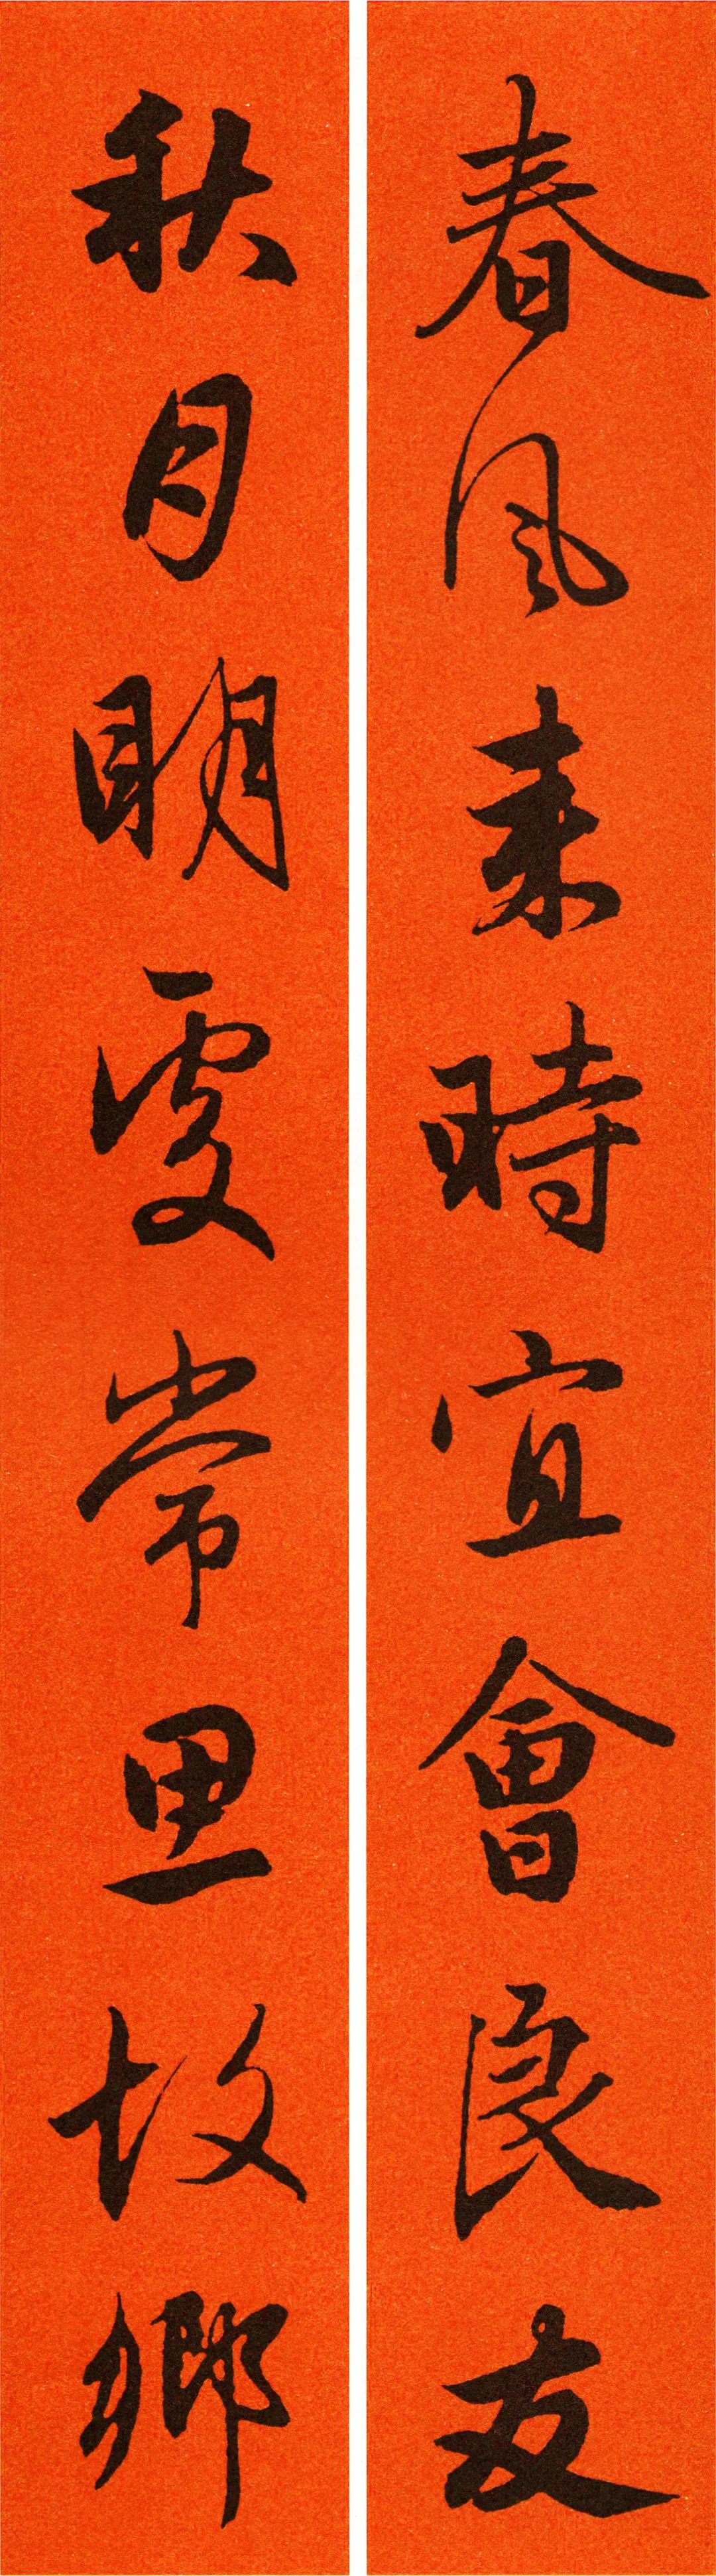 春風來時宜會良友
秋月明處常思故鄉